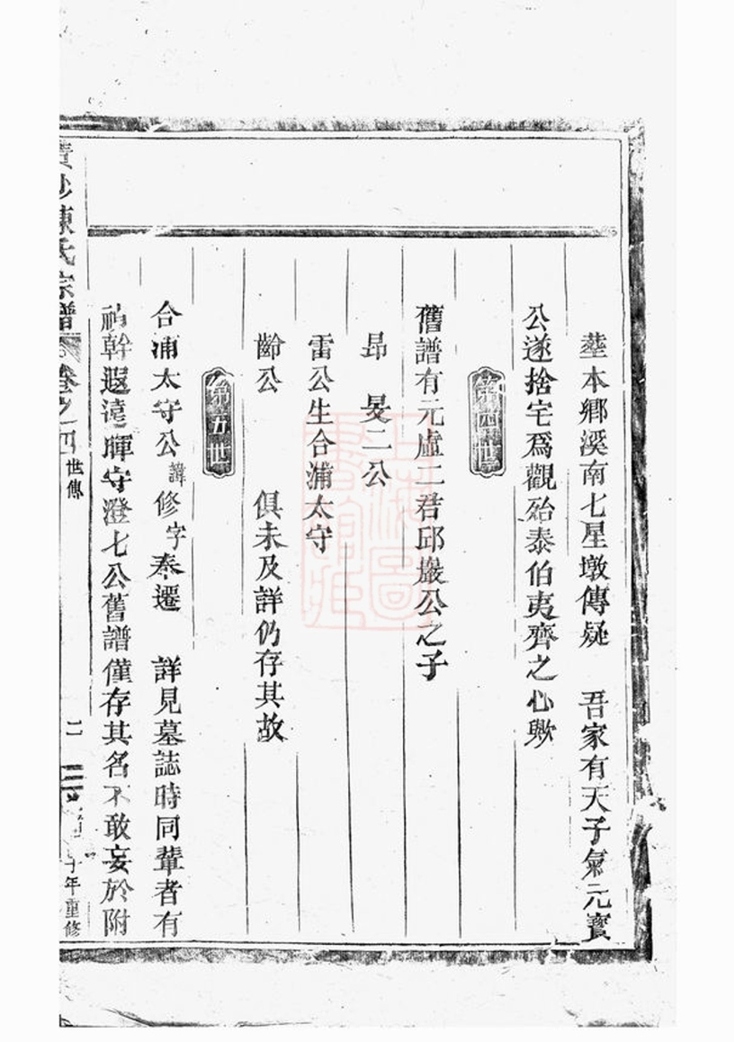 塟本鄉溪南七星墩傳疑　吾家有天子氣元寳
公遂捨宅爲觀殆泰伯夷齊之心歟
第四世
舊譜有元虛二君邱巖公之子
昂　旻二公
雷公生合浦太守
齡公　　　俱未及詳仍存其故
第五世
合浦太守公諱修字奉遷　詳見墓誌時同輩者有
禎幹遐遠暉守澄七公舊譜僅存其名不敢妄於附
陳氏宗譜　卷之四　世傳　二　十年重修